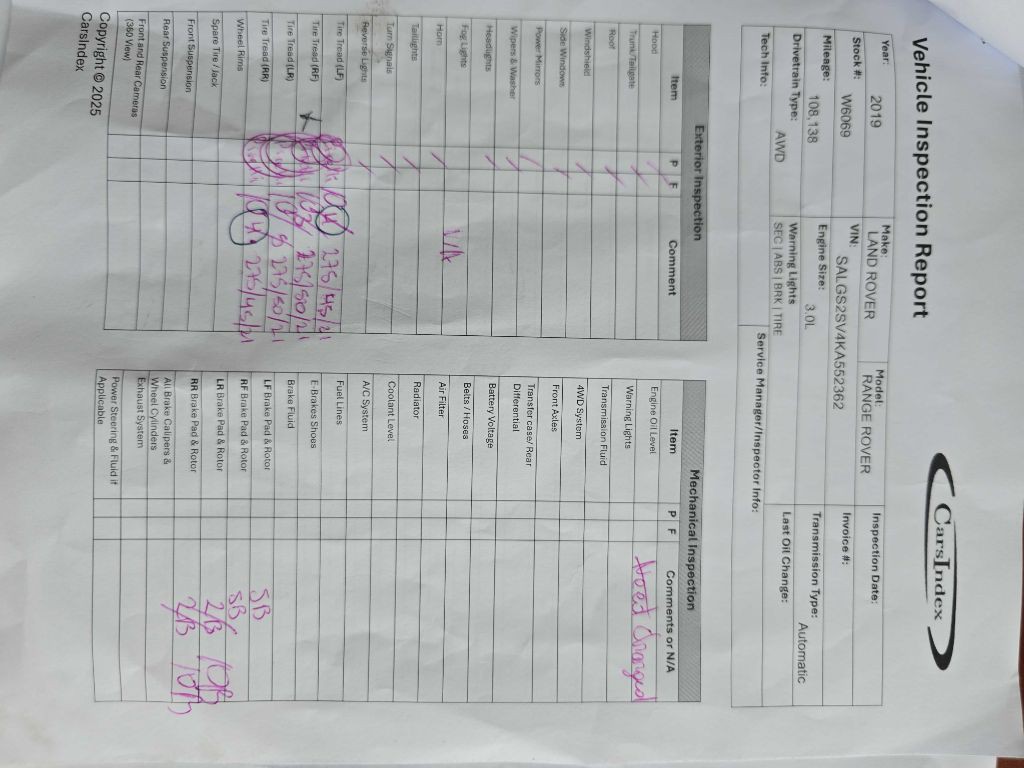 Vehicle Inspection Report
CarsIndex
Year: 2019
Make: LAND ROVER
Model: RANGE ROVER
Inspection Date:
Stock #: W6069
VIN: SALGS2SV4KA552362
Invoice #:
Mileage: 108,138
Engine Size: 3.0L
Transmission Type: Automatic
Drivetrain Type: AWD
Warning Lights SEC | ABS | BRK | TIRE
Last Oil Change:
Tech Info:
Service Manager/Inspector Info:
Exterior Inspection
Item P F Comment
Hood
Trunk/Tailgate
Roof
Windshield
Side Windows
Power Mirrors
Wipers & Washer
Headlights
Fog Lights N/A
Horn
Taillights
Turn Signals
Reverse Lights
Tire Tread (LF) 275/45/21
Tire Tread (RF) 275/50/21
Tire Tread (LR) 275/50/21
Tire Tread (RR) 275/45/21
Wheel Rims
Spare Tire / Jack
Front Suspension
Rear Suspension
Front and Rear Cameras
(360 View)
Mechanical Inspection
Item P F Comments or N/A
Engine Oil Level Need changed
Warning Lights
Transmission Fluid
4WD System
Front Axles
Transfer case/ Rear
Differential
Battery Voltage
Belts / Hoses
Air Filter
Radiator
Coolant Level
A/C System
Fuel Lines
E-Brakes Shoes
Brake Fluid
LF Brake Pad & Rotor 5B
RF Brake Pad & Rotor 5B
LR Brake Pad & Rotor 2/B
RR Brake Pad & Rotor 2/B
All Brake Calipers &
Wheel Cylinders
Exhaust System
Power Steering & Fluid if
Applicable
Copyright © 2025
CarsIndex